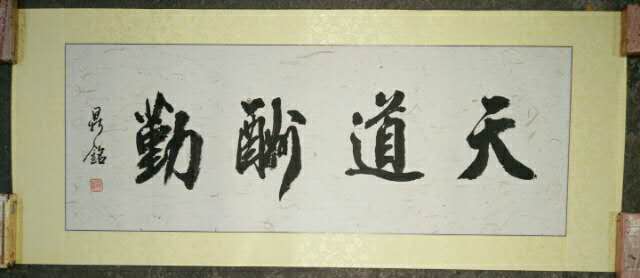 天道酬勤
鼎铭